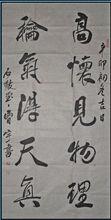 辛卯初冬吉日
高懷見物理
龢氣得天真
書